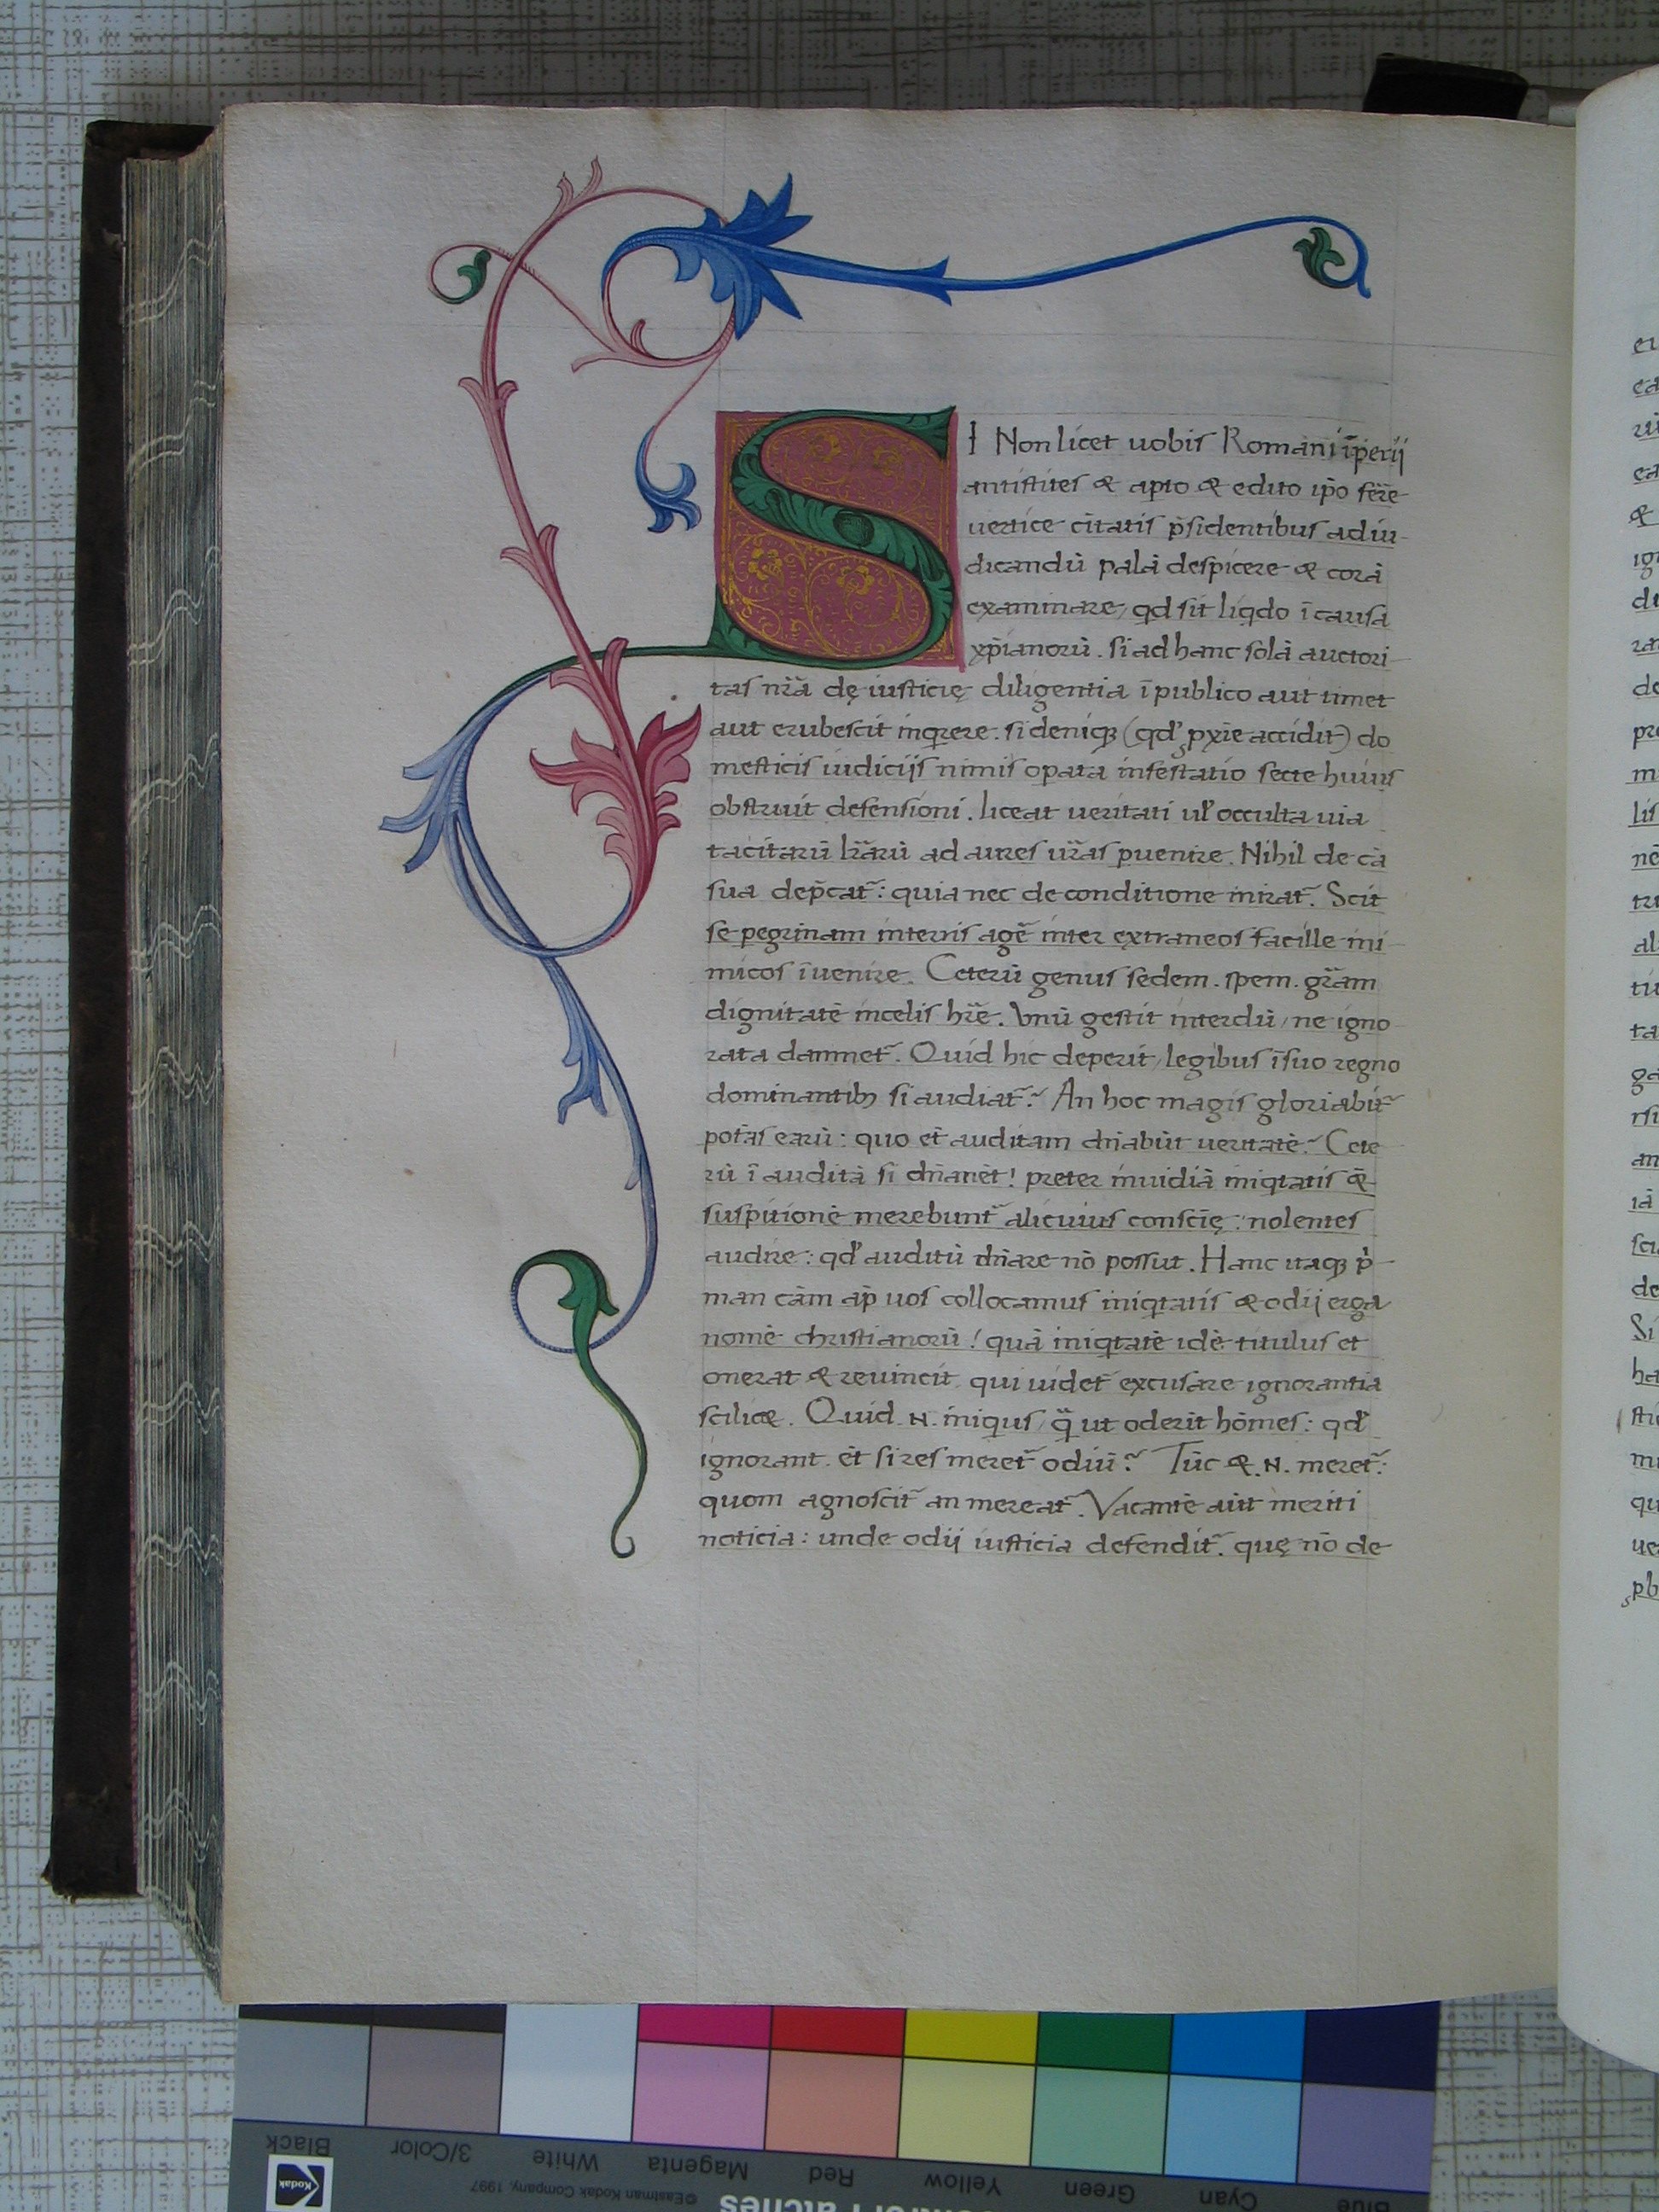 SI Non licet uobis Romani īperij
antistites & apto & edito ip̄o fer̄e
uertice citatis p̄sidentibus ad iu-
dicandū palā despicere & corā
examinare, qd sit liqdo ī causa
xp̄ianorū. si ad hanc solā auctori-
tas nr̄ā dę iusticię diligentia ī publico aut timet
aut erubescit inqrere. si deniqꝫ (qd' ꝓxīe accidit) do
mesticis iudicijs nimis opata infestatio secte huius
obstruit defensioni. liceat ueritati ul' occulta uia
tacitarū lr̄arū ad aures ur̄as puenire. Nihil de cā
sua dep̄cat᷑: quia nec de conditione mirat᷑. Scit
se pegrinam interris agē inter extraneos facille ini-
micos īuenire. Ceterū genus sedem. spem. gr̄am
dignitatē incelis hr̄e. Vnū gestit interdū, ne igno
rata damnet᷑. Quid hic deperit, legibus ī suo regno
dominantibꝫ si audiat᷑? An hoc magis gloriabit᷑
potās earū: quo et auditam dn̄abūt ueritatē? Cete
rū ī auditā si dn̄anēt! preter inuidiā iniqtatis &
suspitionē merebunt᷑ alicuius conscīę: nolentes
audire: qd' auditū dn̄are nō possut. Hanc itaqꝫ p̓-
man cām ap̄ uos collocamus iniqtatis & odij erga
nomē christianorū! quā iniqtatē idē titulus et
onerat & reuincit qui uidet᷑ excusare ignorantia
scilicꝫ. Quid .N. iniqus, q̄ ut oderit hōmes: qd'
ignorant. et si res meret᷑ odiū? Tūc &. N. meret᷑:
quom agnoscit᷑ an mereat᷑. Vacantē aūt meriti
noticia: unde odij iusticia defendit᷑. quę nō de
Black
3/Color
White
Magenta
Red
Yellow
Green
Cyan
Blue
Kodak
©Eastman Kodak Company, 1997